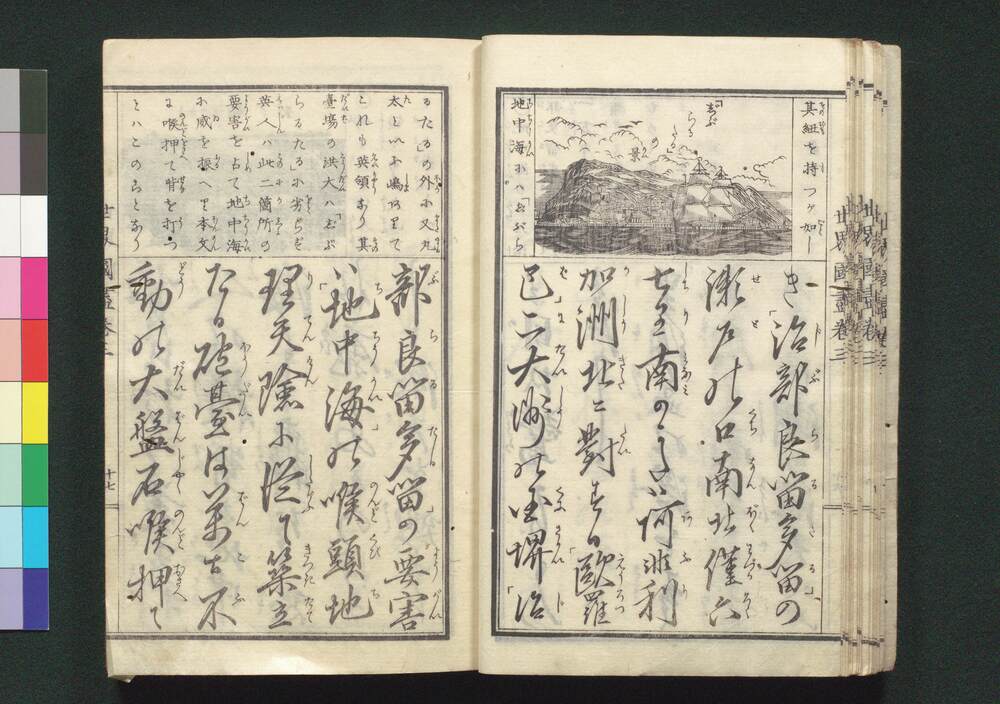 其紐を持つが如し
じぶらるたるの景
地中海にハ「じぶら
き「治部良留多留の
瀬戸の口南北僅六
七里南のかたハ阿非利
加洲北に對する歐羅
巴二大洲の国堺「治
るたる」の外に又丸
太といふ嶋ありて
これも英領なり其
臺場の洪大ハ「じぶ
らるたる」に劣らず
英人ハ此二箇所の
要害を占て地中海
に威を振へり本文
に喉押て背を打つ
とハこのことなり
部良留多留の要害
ハ「地中海」の喉頭地
理天險に從て築立
たる砲臺は萬古不
動の大盤石喉押て
世界國盡卷三
十七